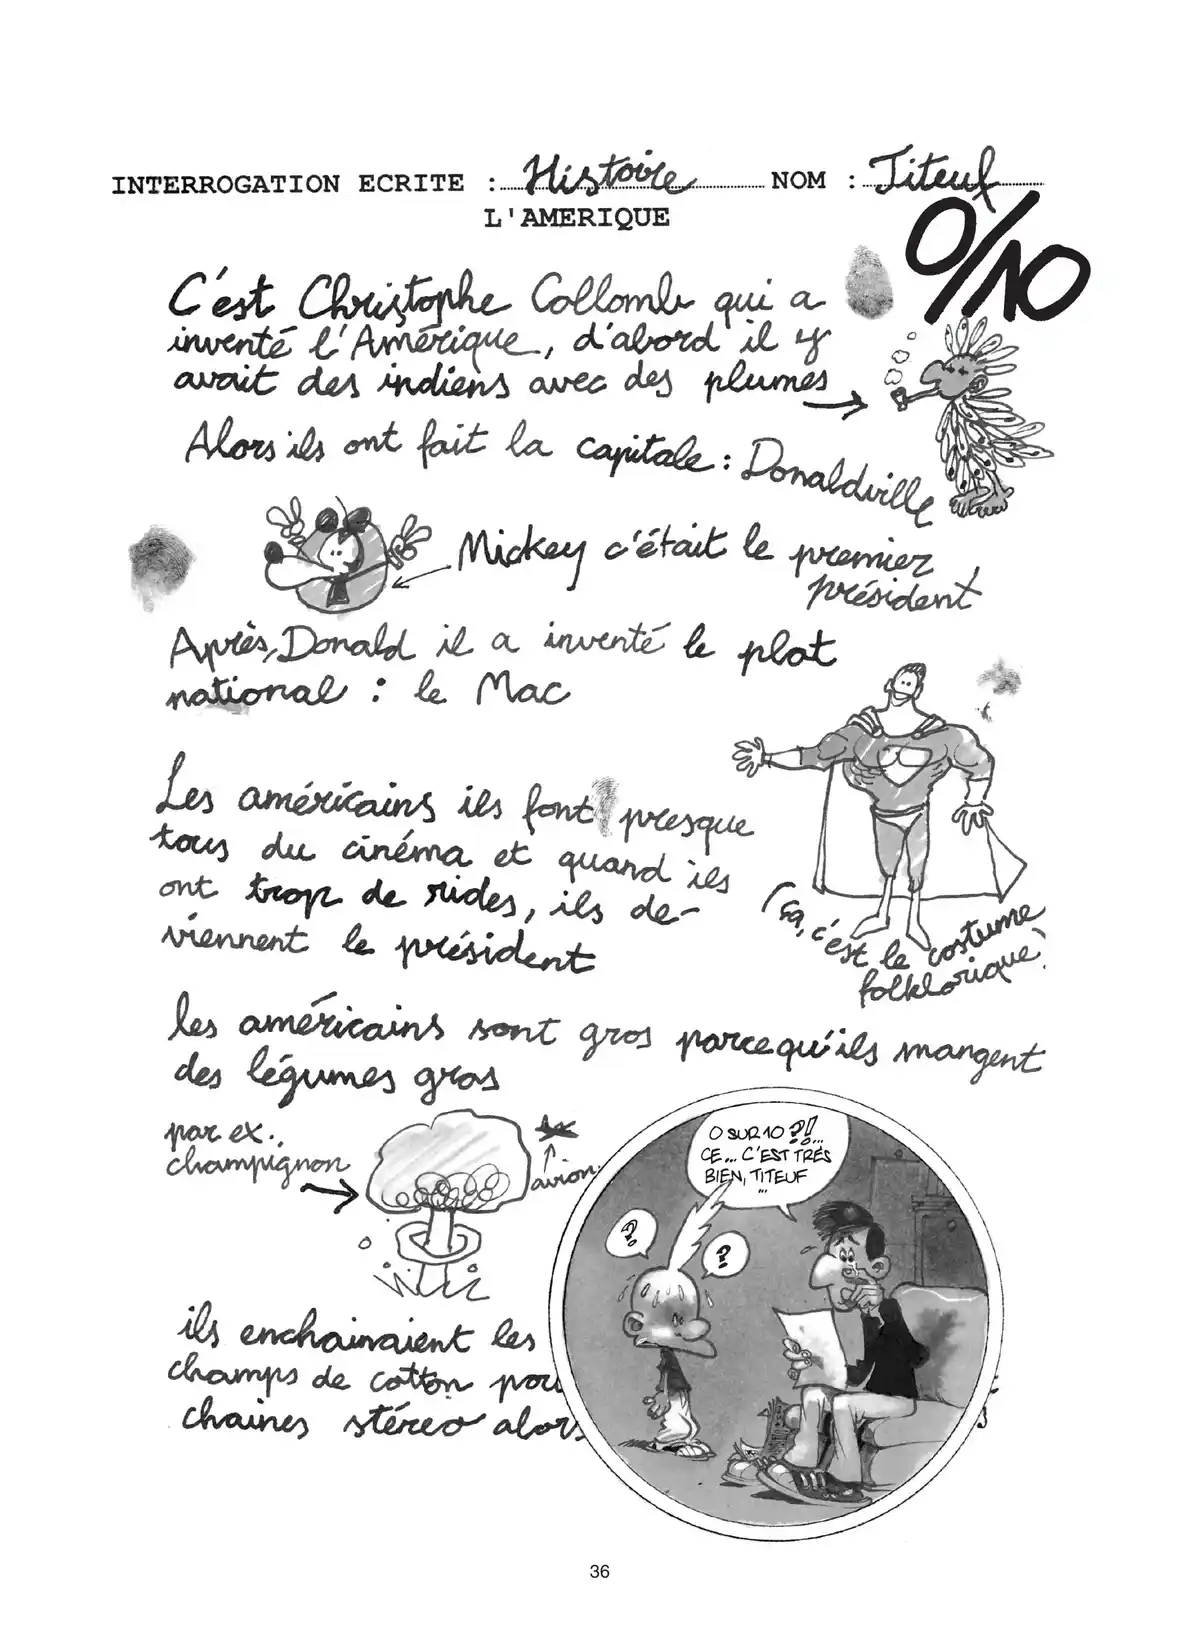 INTERROGATION ECRITE : Histoire NOM : Titeuf
L'AMERIQUE
0/10
C'est Christophe Collomb qui a
inventé l'Amérique, d'abord il y
avait des indiens avec des plumes
Alors ils ont fait la capitale : Donaldville
Mickey c'était le premier
président
Après, Donald il a inventé le plat
national : le Mac
Les américains ils font presque
tous du cinéma et quand ils
ont trop de rides, ils de-
viennent le président
(ça, c'est le costume
folklorique)
les américains sont gros parcequ'ils mangent
des légumes gros
par ex.,
champignon
avion
ils enchainaient les
champs de cotton
chaines stéréo alors
0 SUR 10 ?!...
CE... C'EST TRÉS
BIEN, TITEUF
...
?
?
36